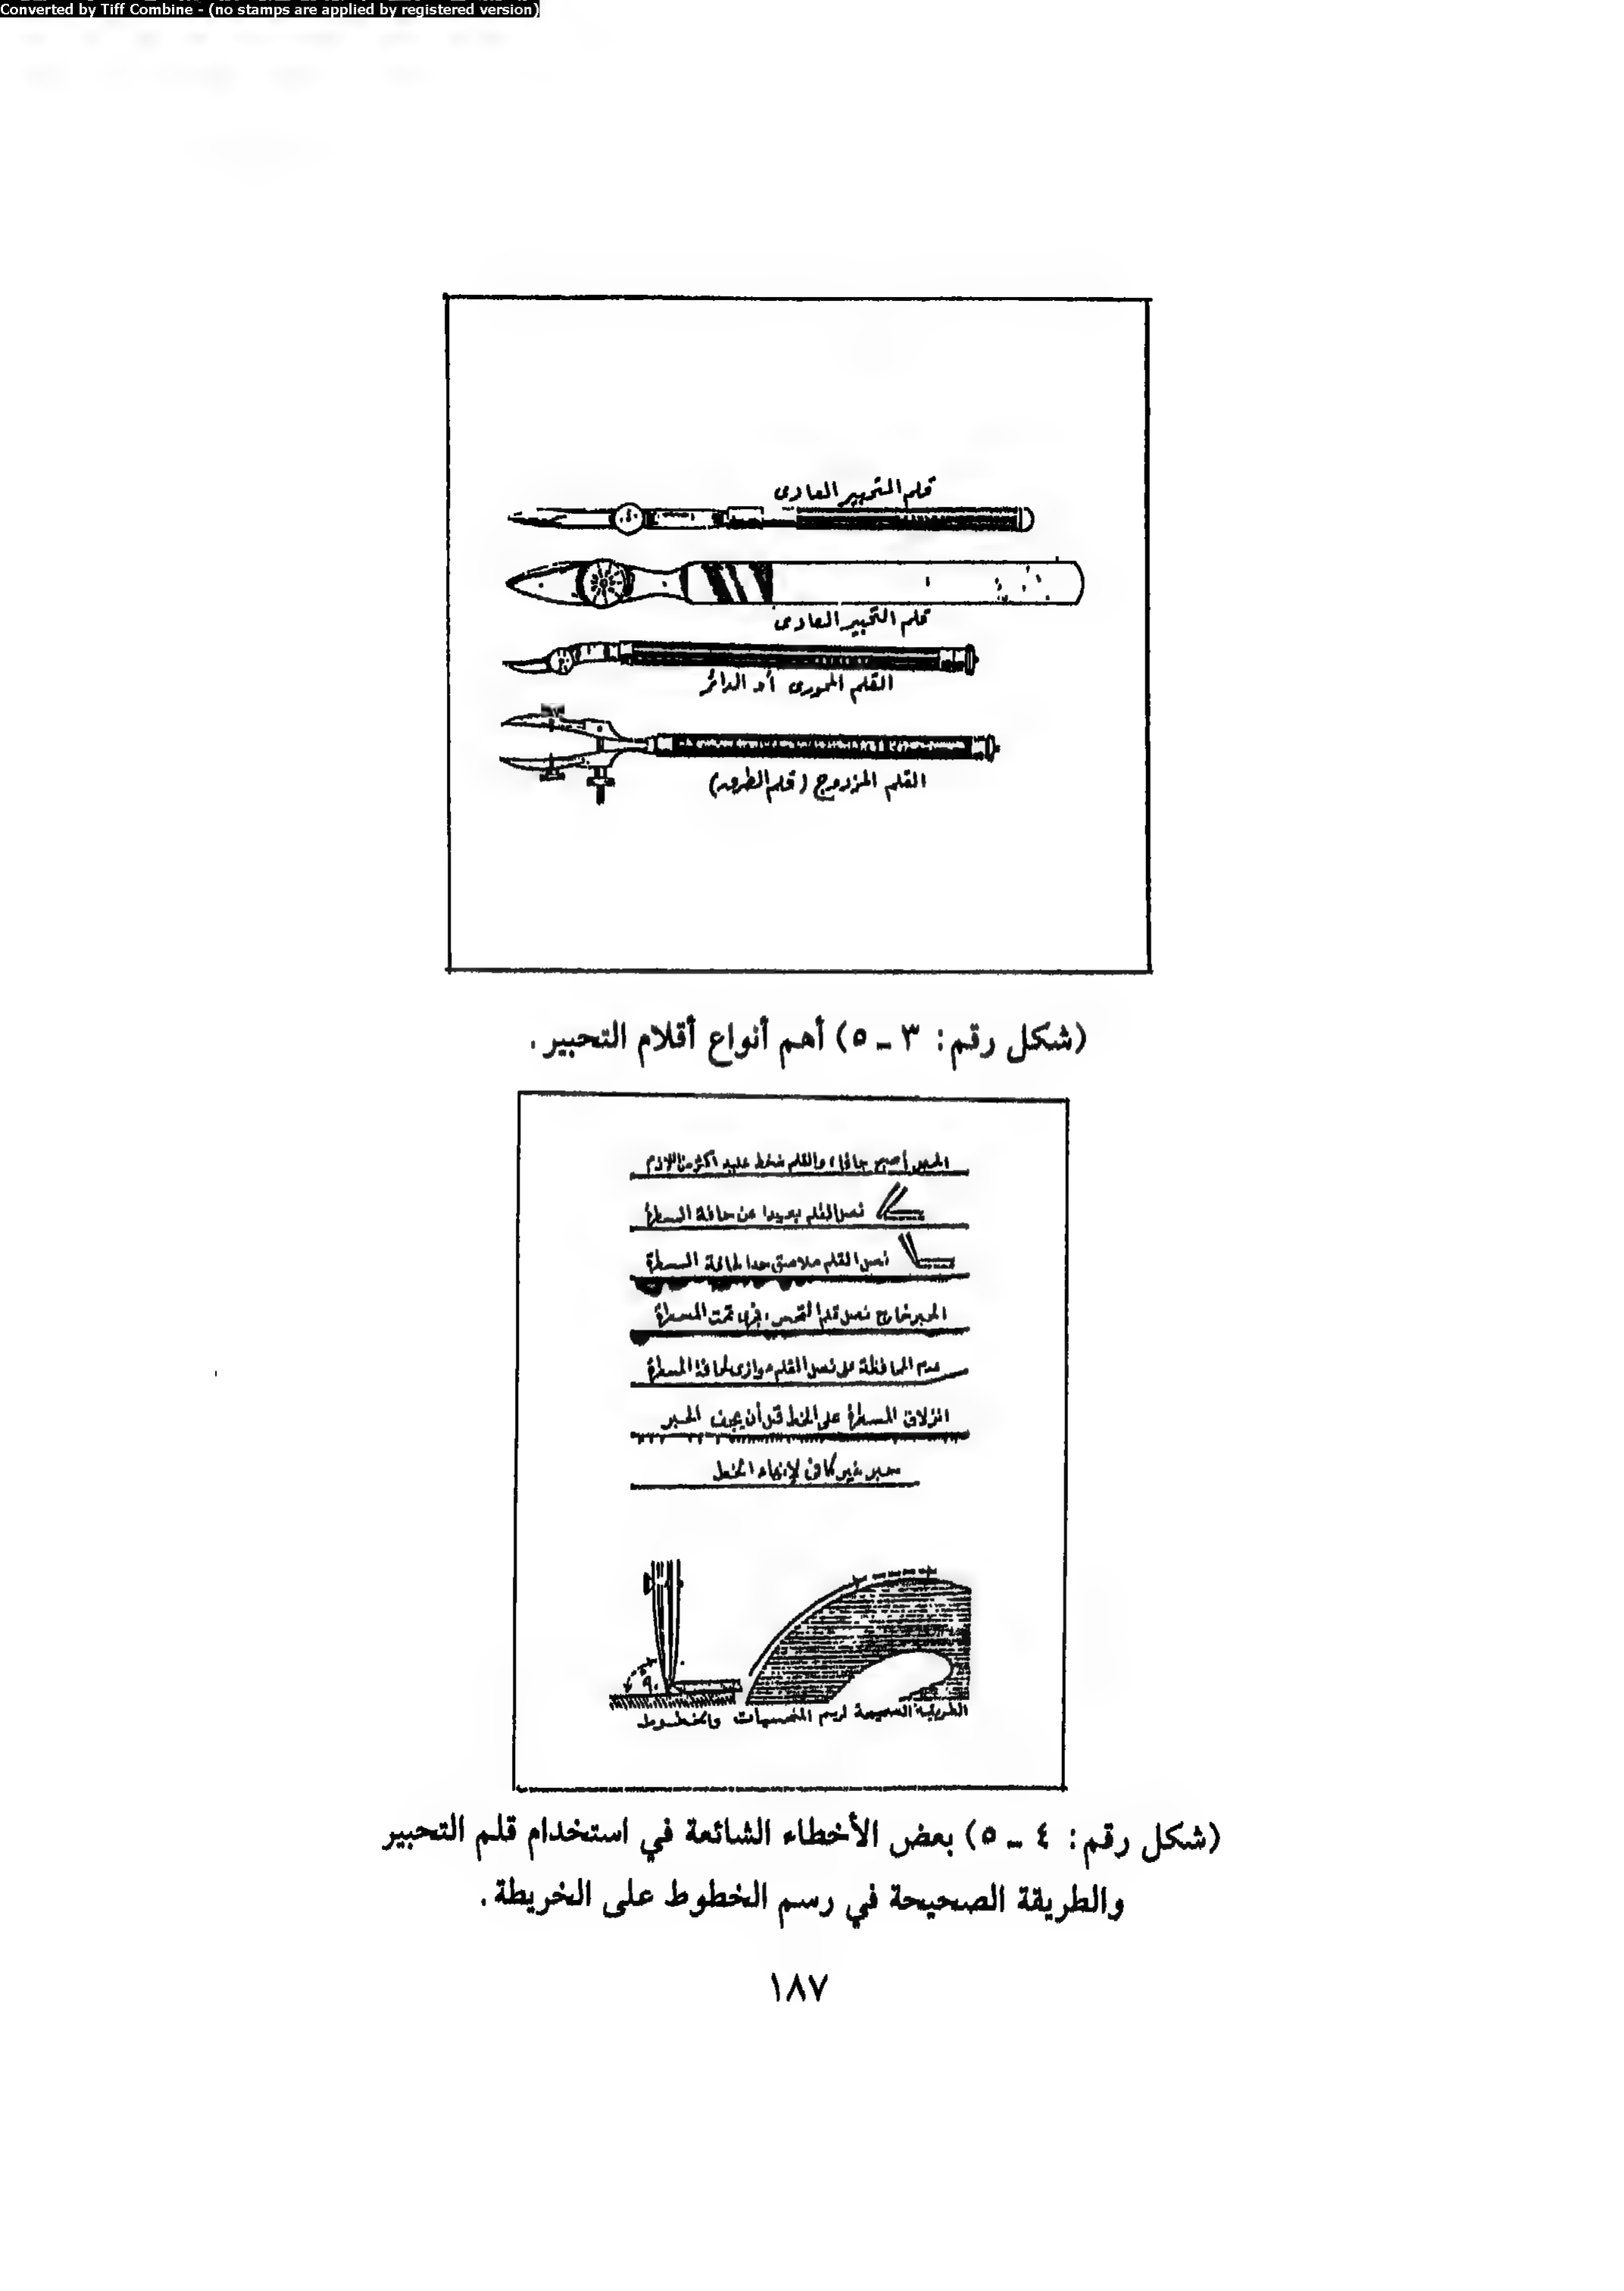 Converted by Tiff Combine - (no stamps are applied by registered version)
قلم التحبير العادى
قلم التحبير العادى
القلم المحورى أو الدائر
القلم المزدوج (قلم الطرق)
(شكل رقم: ٣ ـ ٥) أهم أنواع أقلام التحبير.
الحبر أصبح جافا، والقلم ضغط عليه أكثر من اللازم
نصل القلم بعيدا عن حافة المسطرة
نصل القلم ملاصق جدا لحافة المسطرة
الحبر خارج نصل قلم
تحت المسطرة
عدم المحافظة على نصل القلم موازى لحافة المسطرة
انزلاق المسطرة على الخط قبل أن يجف الحبر
حبر غير كافى لإنهاء الخط
٩٠
الطريقة الصحيحة لرسم المنحنيات والخطوط
(شكل رقم: ٤ ـ ٥) بعض الأخطاء الشائعة في استخدام قلم التحبير
والطريقة الصحيحة في رسم الخطوط على الخريطة.
١٨٧